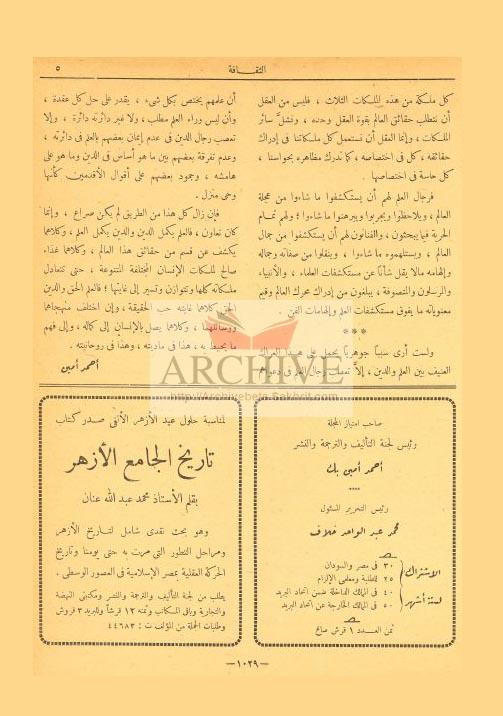 الثقافة
٥
كل ملكة من هذه الملكات الثلاث ، فليس من العقل
أن نتطلب حقائق العالم بقوة العقل وحده ، ونشل سائر
الملكات ، وإنما العقل أن نستعمل كل ملكاتنا فى إدراك
حقائقه ، كل فى اختصاصه ، كما ندرك مظاهره بحواسنا ،
كل حاسة فى اختصاصها .
فرجال العلم لهم أن يستكشفوا ما شاءوا من عجلة
العالم ، ويلاحظوا ويجربوا ويبرهنوا ما شاءوا ؛ ولهم تمام
الحرية فيما يبحثون ، والفنانون لهم أن يستكشفوا من جمال
العالم ، ويستلهموه ما شاءوا ، وينقلوا من صفاته وجماله
وإلهامه مالا يقل شأنا عن مستكشفات العلماء ، والأنبياء
والرسلون والمتصوفة ، يبلغون من إدراك محرك العالم وقيم
معنوياته ما يفوق مستكشفات العلم وإلهامات الفن .
***
ولست أرى سببا جوهريا يحمل على هذا العراك
العنيف بين العلم والدين ، إلا تعسف رجال العلم فى دعواهم
أن علمهم يختص بكل شىء ، يقدر على حل كل عقدة ،
وأن ليس وراء العلم مطلب ، ولا غير دائرته دائرة ، وإلا
تعصب رجال الدين فى عدم إيمان بعضهم بالعلم فى دائرته ،
وعدم تفرقة بعضهم بين ما هو أساس فى الدين وما هو على
هامشه ، وجمود بعضهم على أقوال الأقدمين كأنها
وحى منزل .
فإن زال كل هذا من الطريق لم يكن صراع ، وإنما
كان تعاون ، فالعلم يكمل الدين والدين يكمل العلم ، وكلاهما
يكشف عن قسم من حقائق هذا العالم ، وكلاهما غذاء
صالح لملكات الإنسان المختلفة المتنوعة ، حتى تتعادل
ملكاته كلها وتتوازن وتسير إلى غايتها ؛ فالعلم الحق والدين
الحق كلاهما غايته حب الحقيقة ، وإن اختلف منهجاهما
ووسائلهما ، وكلاهما يصل بالإنسان إلى كماله ، وإلى فهم
ما يحيط به ، هذا فى ماديته ، وهذا فى روحانيته .
أحمد أمين
ARCHIVE
http://Archivebeta.Sakhrit.com
صاحب امتياز المجلة
رئيس لجنة التأليف والترجمة والنشر
أحمد أمين بك
رئيس التحرير المسئول
محمد عبد الواحد خلاف
الاشتراك لستة أشهر
٣٠ فى مصر والسودان
٢٥ للطلبة ومعلمى الإلزام
٤٠ فى الممالك الداخلة ضمن اتحاد البريد
٥٠ فى الممالك الخارجة عن اتحاد البريد
ثمن العدد ١ قرش صاغ
لمناسبة حلول عيد الأزهر الألفى صدر كتاب
تاريخ الجامع الأزهر
بقلم الأستاذ محمد عبد الله عنان
وهو بحث نقدى شامل لتاريخ الأزهر
ومراحل التطور التى مرت به حتى يومنا وتاريخ
الحركة العقلية بمصر الإسلامية فى العصور الوسطى .
يطلب من لجنة التأليف والترجمة والنشر ومكتبتى النهضة
والتجارية وباقى المكاتب وثمنه ١٢ قرشا وللبريد ٣ قروش
وطلبات الجملة من المؤلف ت : ٤٤٦٨٣
—١٠٢٩—